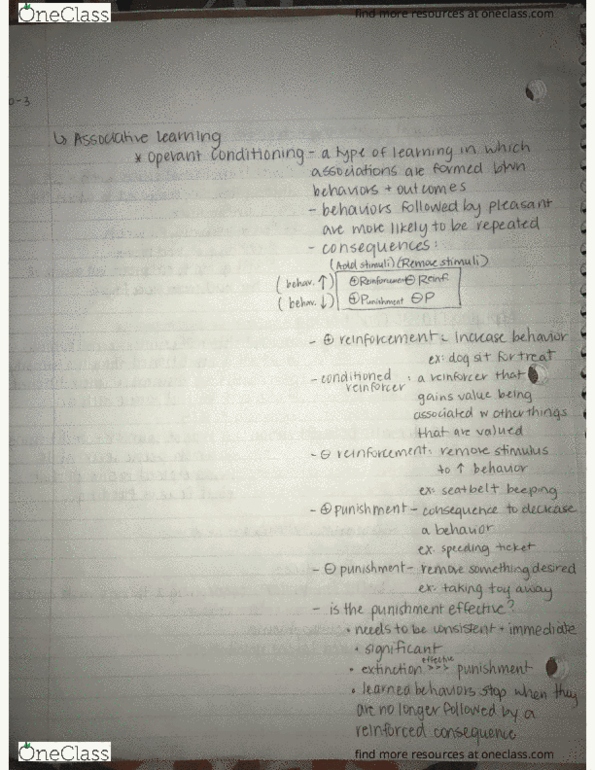 OneClass
find more resources at oneclass.com
0-3
↳ Associative learning
* Operant Conditioning - a type of learning in which
associations are formed btwn
behaviors + outcomes
- behaviors followed by pleasant
are more likely to be repeated
- consequences:
(Add stimuli) (Remove stimuli)
(behav. ↑) ⊕ Reinforcement ⊖ Reinf.
(behav. ↓) ⊕ Punishment ⊖ P
- ⊕ reinforcement = Increase behavior
ex: dog sit for treat
- conditioned reinforcer : a reinforcer that
gains value being
associated w other things
that are valued
- ⊖ reinforcement: remove stimulus
to ↑ behavior
ex: seatbelt beeping
- ⊕ punishment - consequence to decrease
a behavior
ex. speeding ticket
- ⊖ punishment - remove something desired
ex: taking toy away
- is the punishment effective?
• needs to be consistent + immediate
• significant
• extinction effective >>> punishment
• learned behaviors stop when they
are no longer followed by a
reinforced consequence
OneClass
find more resources at oneclass.com